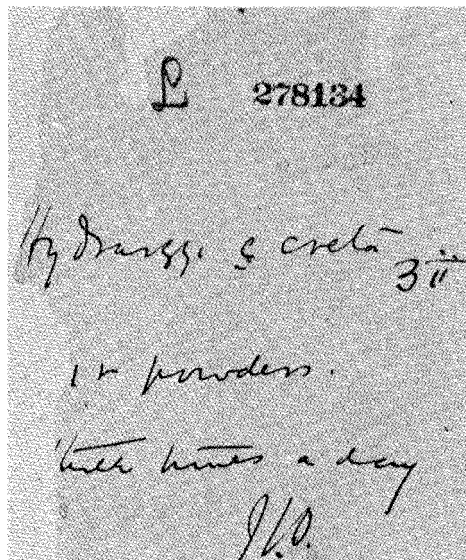 L 278134
Hydrargyri c̄ cretâ ʒii
12 powders.
three times a day